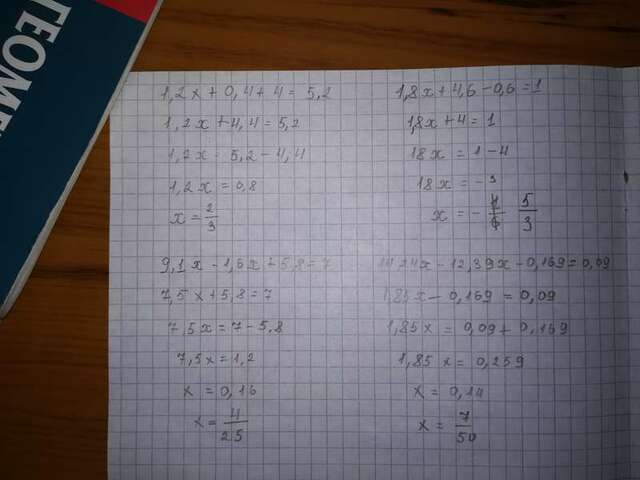 ГЕОМЕ
1,2x + 0,4 + 4 = 5,2
1,2x + 4,4 = 5,2
1,2x = 5,2 - 4,4
1,2x = 0,8
x = 2/3
1,8x + 4,6 - 0,6 = 1
1,8x + 4 = 1
18x = 1 - 4
18x = - 3
x = - 5/3
9,1x - 1,6x + 5,8 = 7
7,5x + 5,8 = 7
7,5x = 7 - 5,8
7,5x = 1,2
x = 0,16
x = 4/25
14,24x - 12,39x - 0,169 = 0,09
1,85x - 0,169 = 0,09
1,85x = 0,09 + 0,169
1,85x = 0,259
x = 0,14
x = 7/50